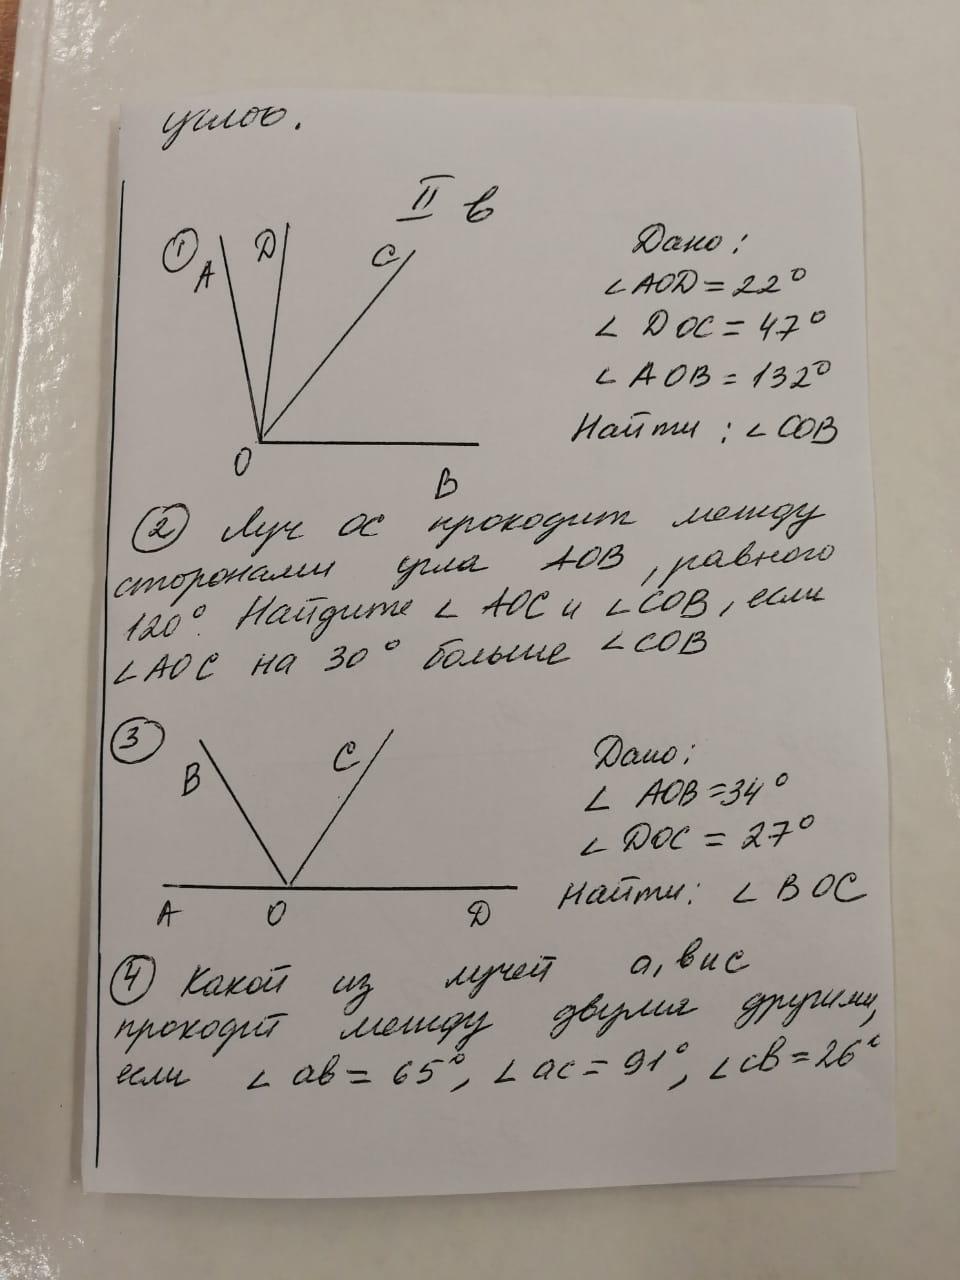 углов.
II в
① A D C
O B
Дано:
∠AOD = 22°
∠ DOC = 47°
∠ AOB = 132°
Найти : ∠COB
② Луч OC проходит между
сторонами угла AOB, равного
120°. Найдите ∠ AOC и ∠COB, если
∠AOC на 30° больше ∠COB
③ B C
A O D
Дано:
∠ AOB = 34°
∠ DOC = 27°
Найти: ∠ BOC
④ Какой из лучей a, b и c
проходит между двумя другими,
если ∠ ab = 65°, ∠ ac = 91°, ∠ cb = 26°